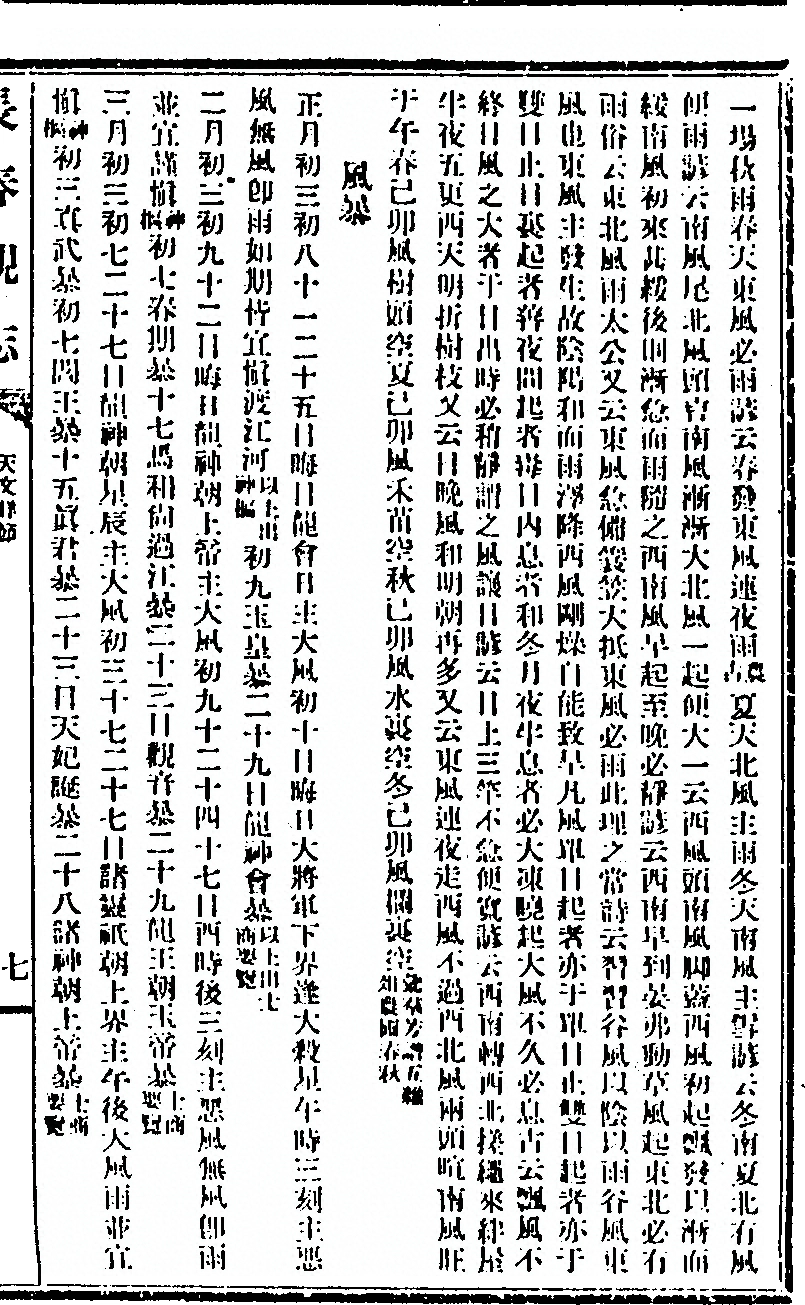 一場伏雨春天東風必雨諺云春發東風連夜雨農占夏天北風主雨冬天南風主雪諺云冬南夏北有風
便雨諺云南風尾北風頭言南風漸漸大北風一起便大一云西風頭南風脚蓋西風初起飄發以漸而
緩南風初來甚緩後則漸急而雨隨之西南風早起至晚必靜諺云西南早到晏弗動草風起東北必有
雨俗云東北風雨太公又云東風急備簑笠大抵東風必雨此理之常詩云習習谷風以陰以雨谷風東
風也東風主發生故陰陽和而雨澤降西風剛燥自能致旱凡風單日起者亦于單日止雙日起者亦于
雙日止日裏起者善夜間起者毒日內息者和冬月夜半息者必大凍曉起大風不久必息古云飄風不
終日風之大者于日出時必稍靜謂之風讓日諺云日上三竿不急便寬諺云西南轉西北搓繩來絆屋
半夜五更西天明折樹枝又云日晚風和明朝再多又云東風連夜走西風不過西北風兩頭喧南風旺
于午春己卯風樹頭空夏己卯風禾苗空秋己卯風水裏空冬己卯風欄裏空
風暴
正月初三初八十一二十五日晦日龍會日主大風初十日晦日大將軍下界逢大殺星午時三刻主惡
風無風卽雨如期皆宜愼渡江河以上出神樞初九玉皇暴二十九日龍神會暴以上出士商要覽
二月初三初九十二日晦日龍神朝上帝主大風初九十二十四十七日酉時後三刻主惡風無風卽雨
並宜謹愼神樞初七春期暴十七馬和尚過江暴二十三日觀音暴二十九龍王朝玉帝暴士商要覽
三月初三初七二十七日龍神朝星辰主大風初三十七二十七日諸靈祇朝上界主午後大風雨並宜
愼神樞初三眞武暴初七閻王暴十五眞君暴二十三日天妃誕暴二十八諸神朝上帝暴士商要覽
長春觀志
天文
七